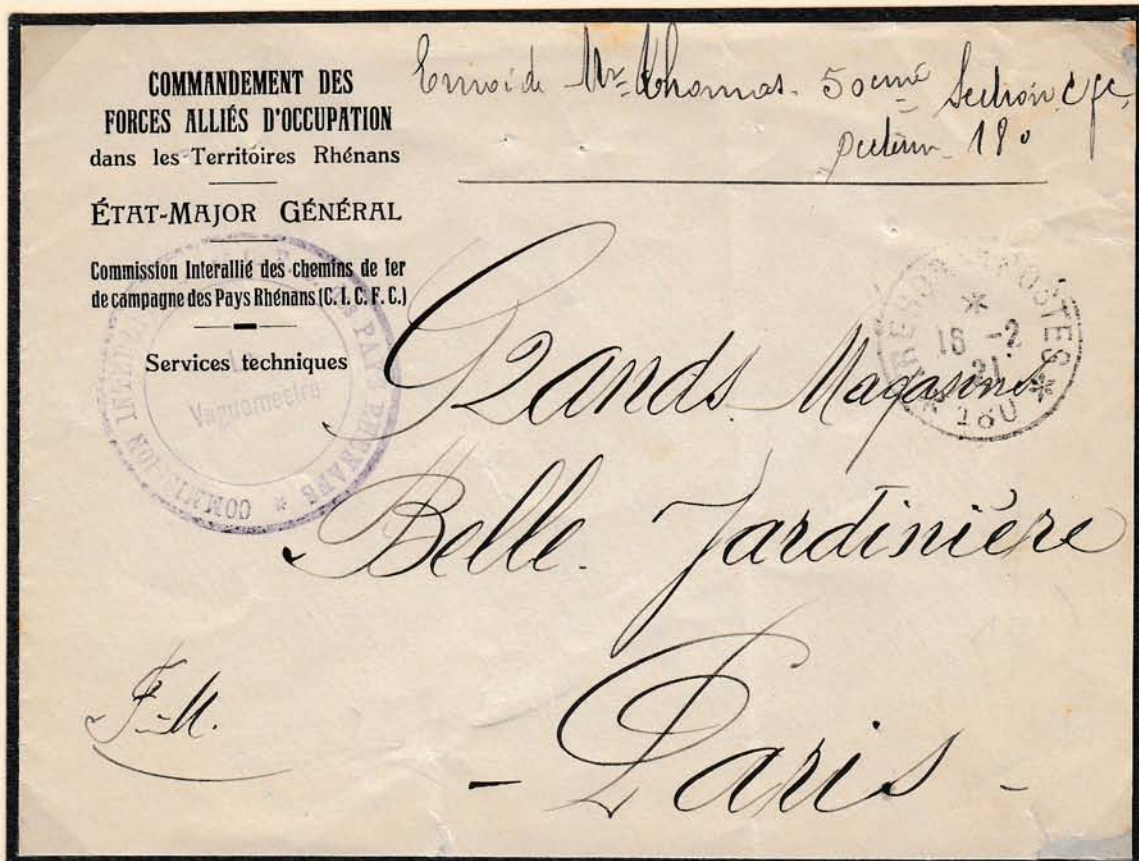 COMMANDEMENT DES
FORCES ALLIÉS D'OCCUPATION
dans les Territoires Rhénans
ÉTAT-MAJOR GÉNÉRAL
Commission Interallié des chemins de fer
de campagne des Pays Rhénans (C.I.C.F.C.)
Services techniques
Envoi de Mr Thomas. 50eme Section cfc,
180
COMMISSION PAYS RHENANS *
Vaguemestre
POSTES * 180 *
16 -2
21
Grands Magasins
Belle Jardinière
F.M.
- Paris -